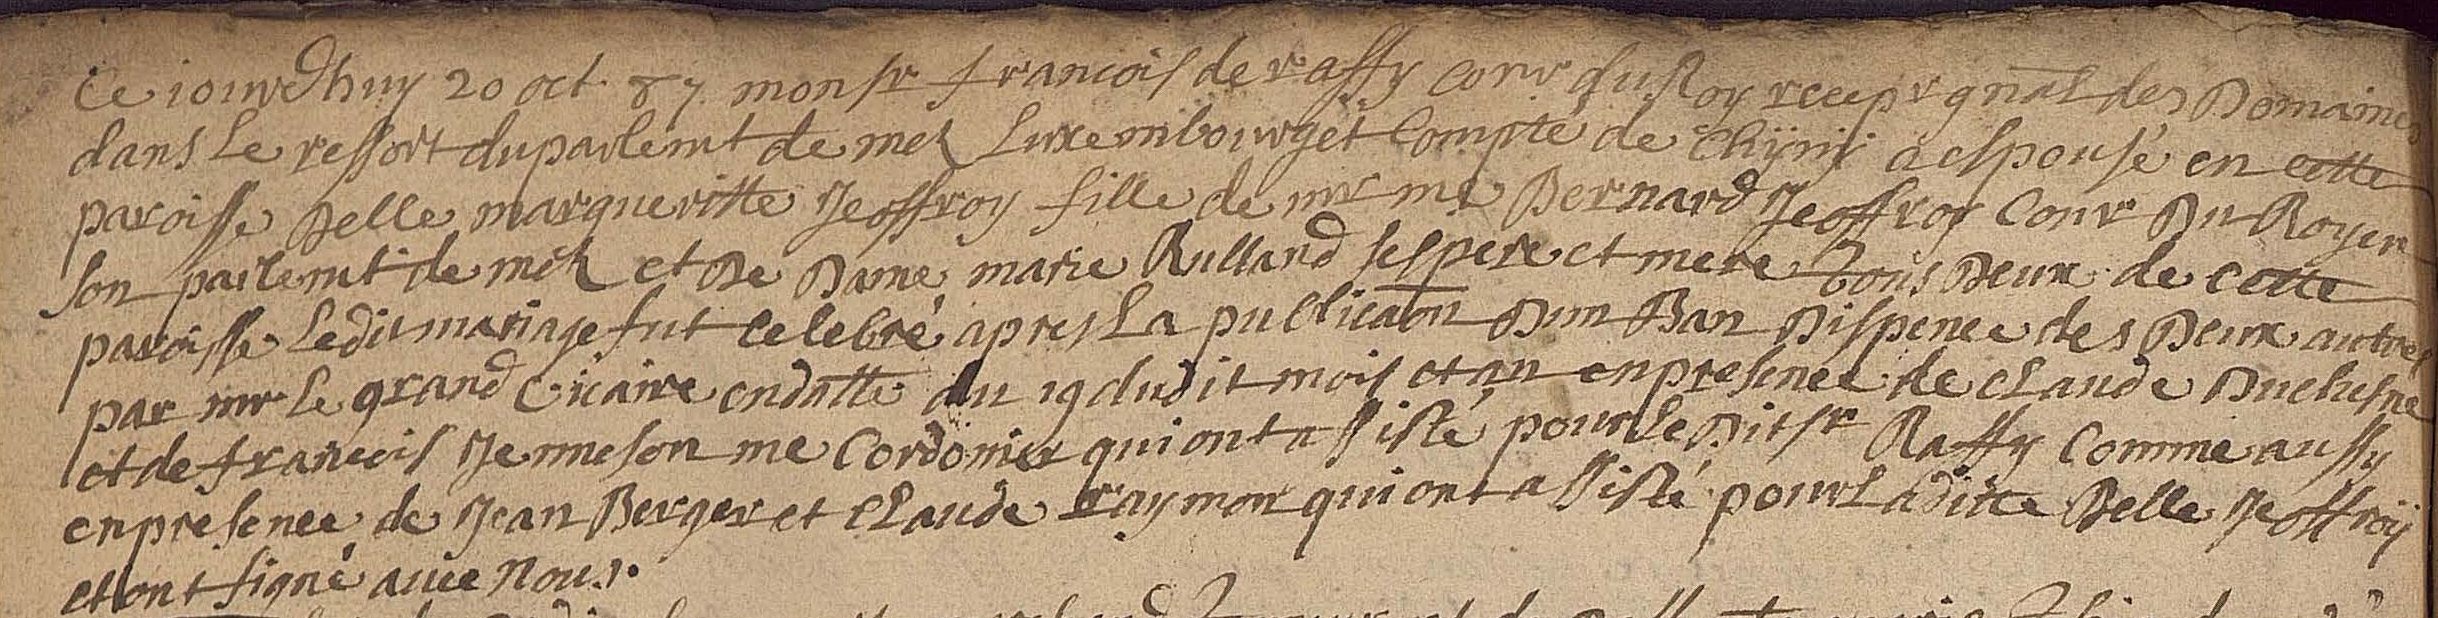 Ce iourdhuy 20 oct 87 monsr francois de raffy conr du Roy recepr gnal des Domaines
dans Le ressort du parlemt de metz Luxembourg et Compté de Chijnij a espousé en cette
paroisse Delle margueritte Jeoffroy fille de mr me Bernard Jeoffroy Conr Du Roy en
son parlemt de metz et De Dame marie Rulland ses pere et mere tous Deux de cette
paroisse Ledit mariage fut Celebré apres La publicaon Dun Ban Dispence des Deux autres
par mr Le grand Vicaire en datte du 19 dudit mois et an en presence de cLaude Duchesne
et de francois Jenneson me Cordonier qui ont assisté pour Le Dit sr Raffy Comme aussy
en presence de Jean Berger et cLaude raymon qui ont assisté pour La ditte Delle Jeoffroij
et ont signé avec Nous.